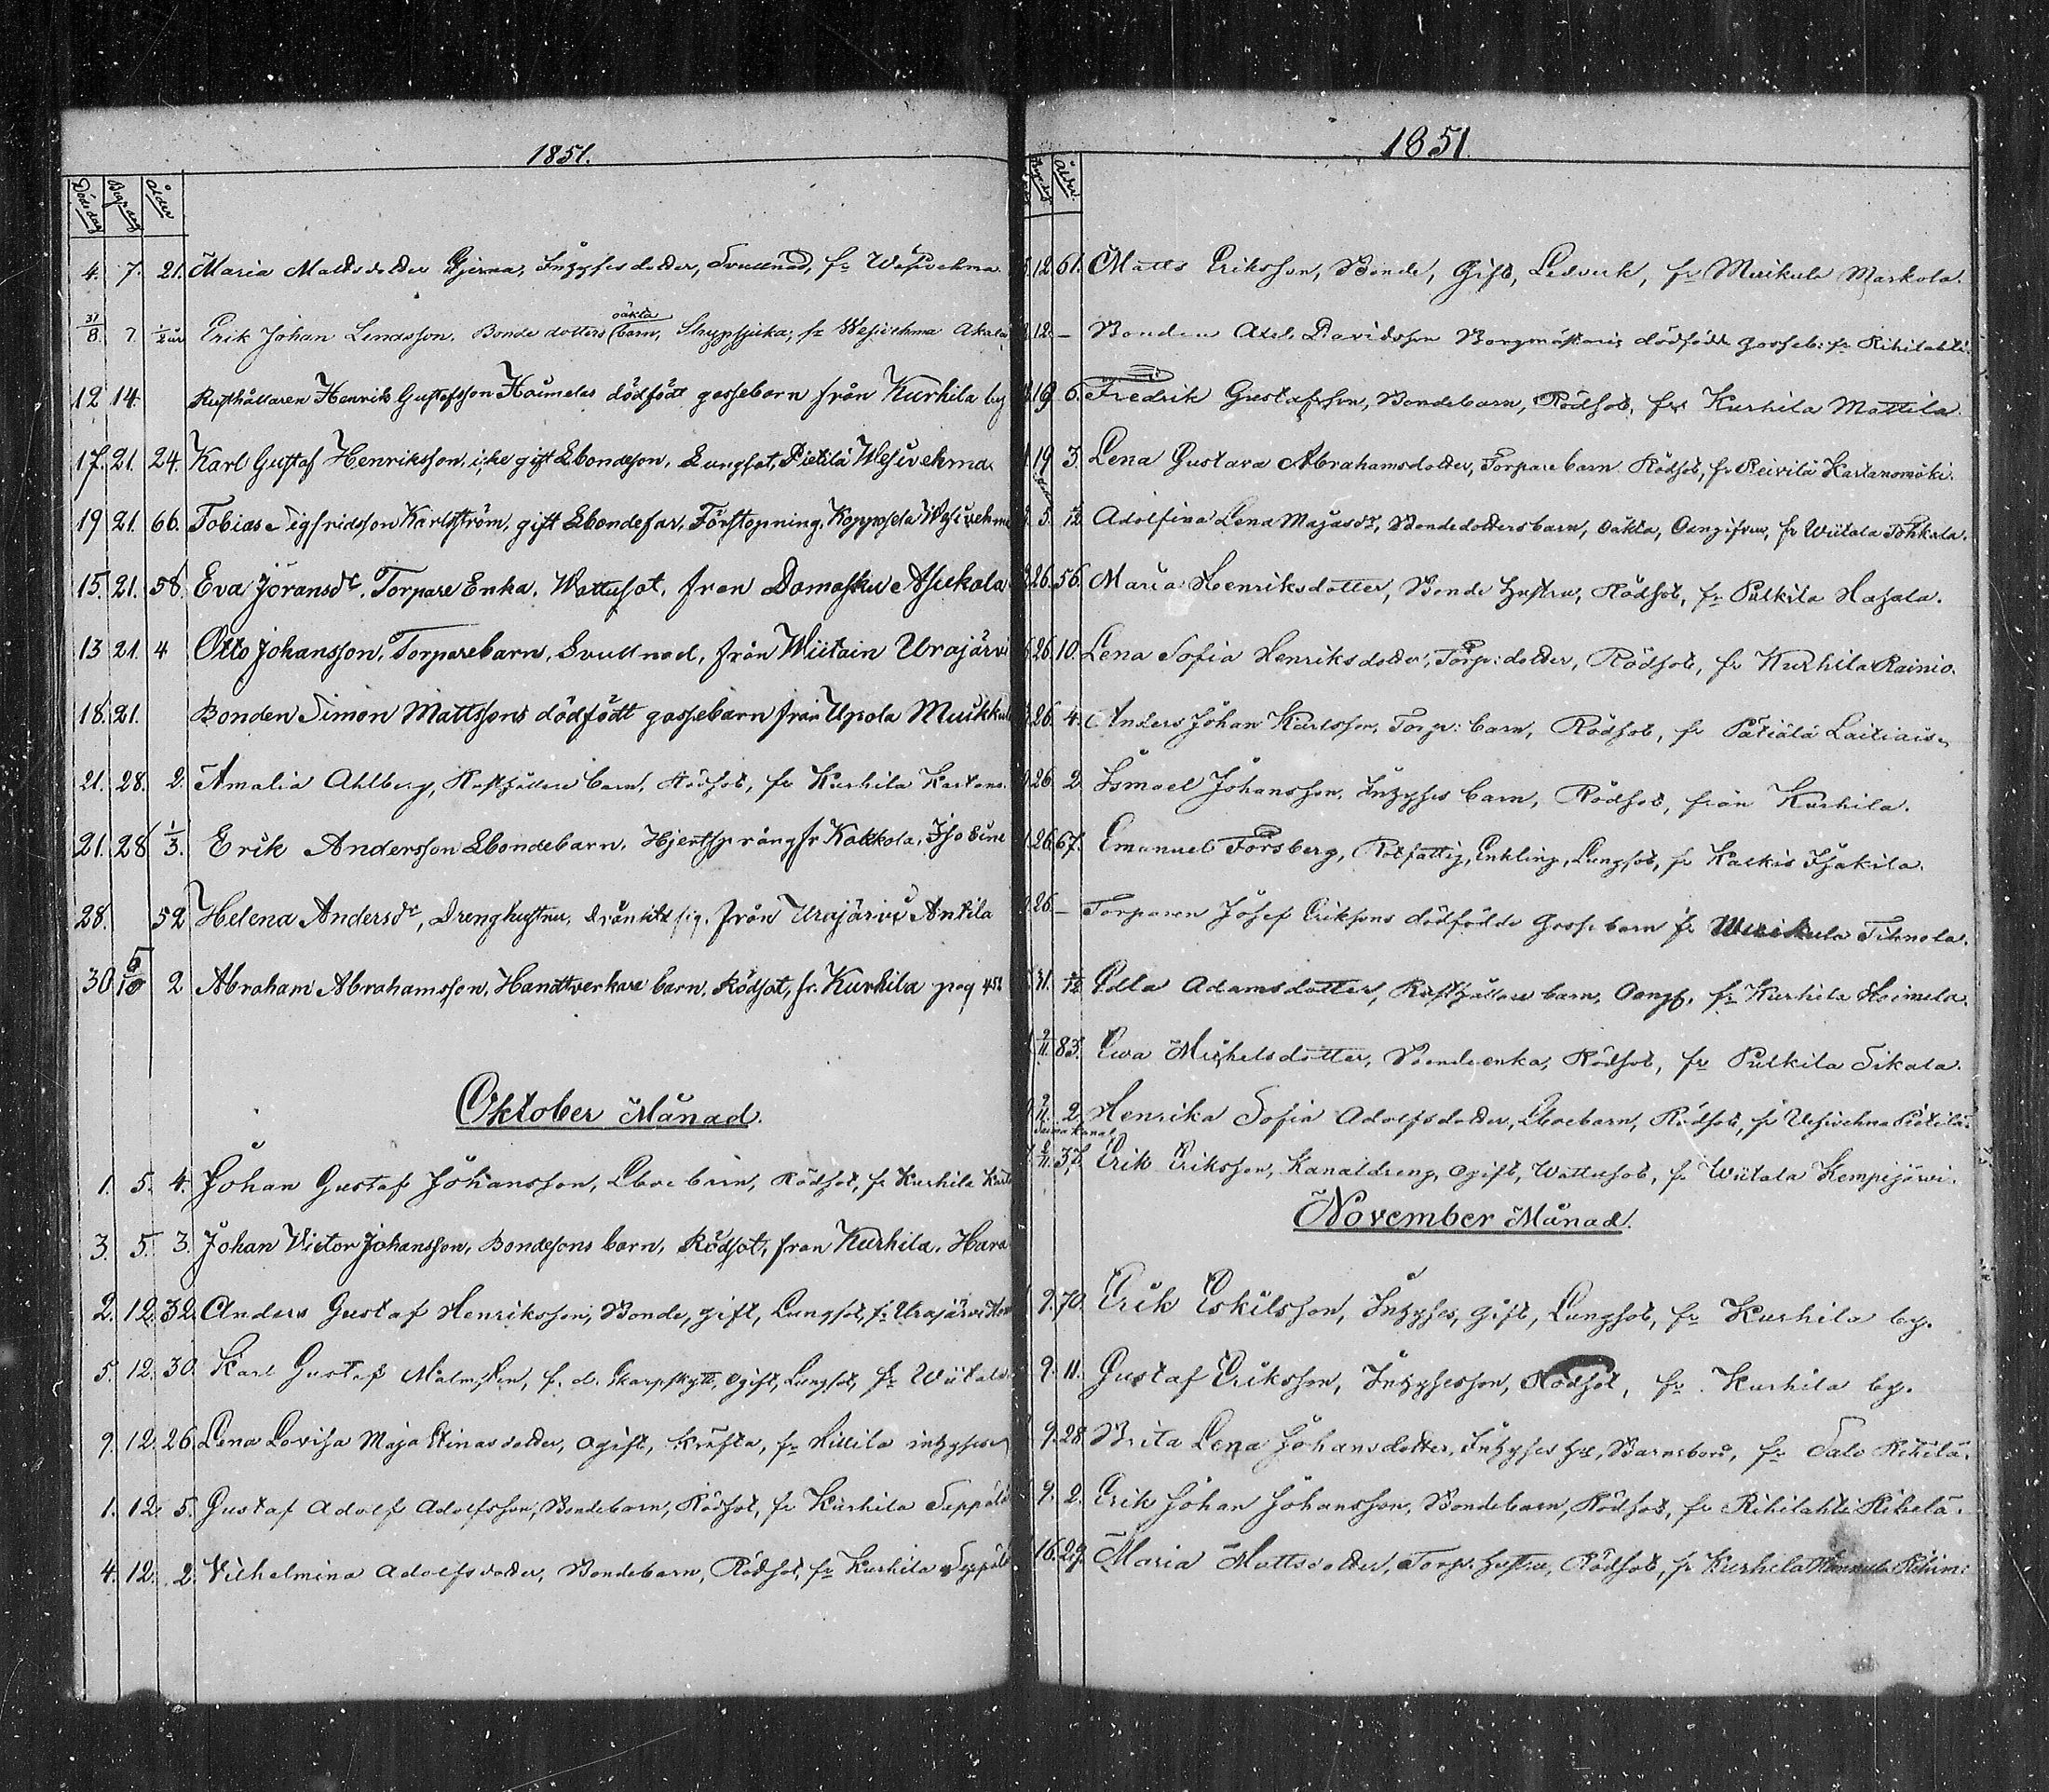 1851.
Dödsdag Begr.dag Ålder
4. 7. 21. Maria Mattsdotter Gjerna, Inhyses dotter, Svullnad, fr Wesivehma
31/8. 7. 1/2 år Erik Johan Lenasson, Bonde dotters oäkta barn, Strypsjuka, fr Wesivehma Akala
12 14. Rusthållaren Henrik Gustafsson Heimelas dödfödt gossebarn från Kurhila by
17. 21. 24. Karl Gustaf Henriksson icke gift Ebondeson, Lungsot, Pietilä Wesivehma
19 21. 66. Tobias Sigfridsson Karlström, gift Ebondefar, Förstopning, Koppasela Wesivehma
15. 21. 58. Eva Jöransdr, Torpare Enka, Wattusot, från Damasku Asikkala
13 21. 4 Otto Johansson, Torparebarn, Svullnad, från Wiitain Urajärvi
18. 21. Bonden Simon Mattssons dödfödt gossebarn från Upola Muikkula
21. 28. 2. Amalia Ahlberg, Rusthållare barn, Rödsot, fr Kurhila Kartano
21. 28 1/3. Erik Andersson Ebondebarn, Hjertsprång fr Kalkkola, Iso Eine
28. 52 Helena Andersdr, Drenghustru, dränkte sig, från Urajärvi Antila
30 5/10 2 Abraham Abrahamsson, Handtverkare barn, Rödsot, fr. Kurhila pag 451
Oktober Månad.
1. 5. 4. Johan Gustaf Johansson, Eboebarn, Rödsot, fr Kurhila
3. 5. 3. Johan Victor Johansson, Bondesons barn, Rödsot, från Kurhila, Hara
2. 12. 32. Anders Gustaf Henriksson, Bonde, gift, Lungsot, fr Urajärvi
5. 12. 30. Karl Gustaf Malmsten, f. d. Skarpskytt, ogift, Lungsot, fr Wiitala
9. 12. 26. Lena Lovisa Maja Stinasdotter, ogift, Kräfta, fr Hillilä inhyses
1. 12. 5. Gustaf Adolf Adolfsson, Bondebarn, Rödsot, fr Kurhila Seppälä
4. 12. 2. Vilhelmina Adolfsdotter, Bondebarn, Rödsot, fr Kurhila Seppälä
1851.
Ålder.
12 61. Matts Eriksson, Bonde, Gift, Ledverk, fr Muikula Markola.
12. — Bonden Axel Davidsson Borgmästaris dödfödt gosseb: fr Rihilahti.
19 6. Fredrik Gustafsson, Bondebarn, Rödsot, fr Kurhila Mattila.
19 3. Lena Gustava Abrahamsdotter, Torpare barn Rödsot, fr Reivilä Kartanomäki.
5. Adolfina Lena Majasdr, Bondedottersbarn, oäkta, Oangifven, fr Wiitala Tohkala.
26. 56. Maria Henriksdotter, Bonde hustru, Rödsot, fr Pulkila Hasala.
26 10. Lena Sofia Henriksdotter, Torp: dotter, Rödsot, fr Kurhila Rainio.
26 4. Anders Johan Karlsson, Torp: barn, Rödsot, fr Pätiälä Laitiais.
26 2. Ismael Johansson, Inhyses barn, Rödsot, från Kurhila.
26 67. Emanuel Forsberg, Rotfattig, Enkling, Lungsot, fr Kalkis Isakila.
26 — Torparen Josef Eriksons dödfödde Gosse barn fr Muikula Tihnola.
31. Edla Adamsdotter, Rusthållare barn, Oangf. fr Kurhila Heimela.
2/11. 83. Ewa Michelsdotter, Bondeenka, Rödsot, fr Pulkila Sikala.
2/11. 2. Henrika Sofia Adolfsdotter, Eboebarn, Rödsot, fr Vesivehma Pietilä.
Saima Kanal
2/11. 37. Erik Eriksson, Kanaldreng, ogift, Wattusot, fr Wiitala Kempijärvi.
November Månad.
9. 70. Erik Eskilsson, Inhyses, gift, Lungsot, fr Kurhila by.
9. 11. Gustaf Eriksson, Inhysesson, Rödsot, fr. Kurhila by.
9. 28 Brita Lena Johansdotter, Inhyses hu, Barnsbörd, fr Salo
9. 2. Erik Johan Johansson, Bondebarn, Rödsot, fr Rihilahti
16. 29. Maria Mattsdotter, Torp: hustru, Rödsot, fr Kurhila